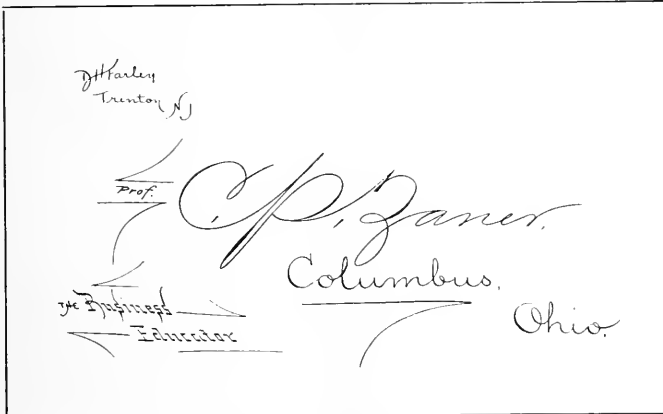 D H Farley
Trenton NJ
Prof.
C. P. Zaner.
Columbus,
Ohio.
The Business
Educator